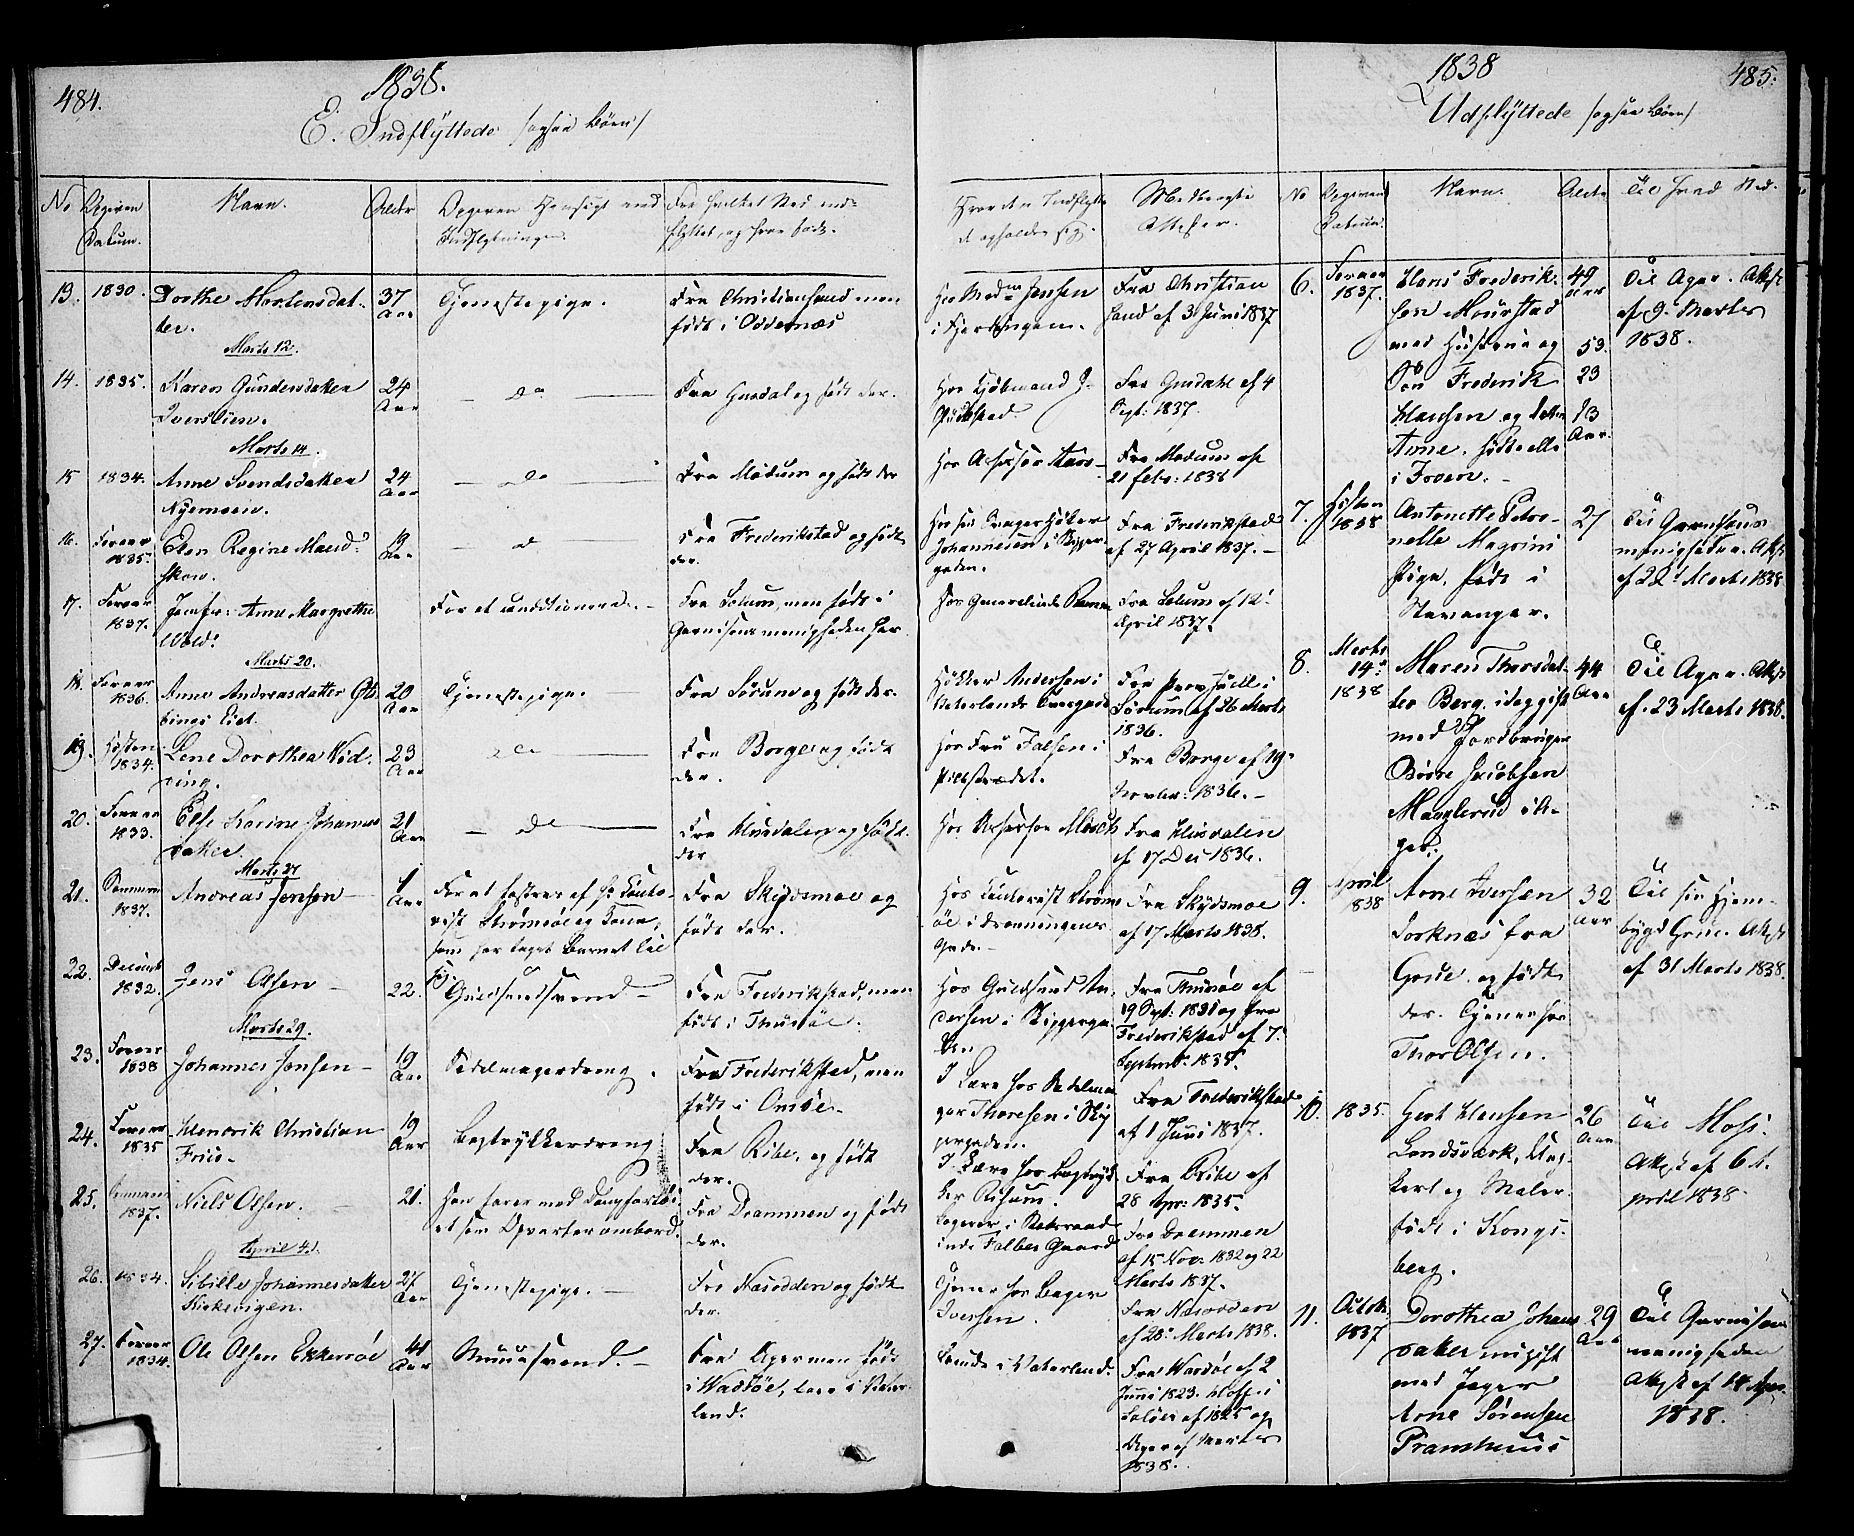 484.
1838.
E. Indflÿttede /ogsaa Børn/
No
Opgiven Datum.
Navn.
Alder
Opgiven Hensigt med Indflytningen.
Fra hvilket Sted ind-
flyttet, og hvor født.
Hvor den Indflytte-
de opholder sig.
Medbragte
Attester.
13. 1830. Dorthe Mortensdat-
ter.
37
Aar
Tjenestepige.
Fra Christiansand men
født i Oddernæs
Hos Mad. Jensen
i Fjerdingen.
Fra Christian
sand af 3 Juni 1837
Marts 12.
14. 1835. Karen Gundersdatter
Iverslien.
24
Aar
— do —
Fra Gusdal og født der.
Hos Kjøbmand
Fra Gusdahl af 4
Sept: 1837.
Marts 14.
15 1834. Anne Svendsdatter
Nyemoen.
24
Aar
— do —
Fra Modum og født der
Hos Assessor
Fra Modum af
21 febr: 1838
16. Foraar
1835.
Elen Regine Mand-
skow.
19
Aar
— d
Fra Frederikstad og født
der.
Hos
Johannesen i Skipper-
gaden.
Fra Frederikstad
af 27 April 1837. —
17. Foraar
1837.
Jomfr: Anne Margrethe
Wold.
For at conditionere. —
Fra Solum, men født i
Garnisonsmenigheden her.
Hos Generalinde
Fra Solum af 12
April 1837.
Marts 20.
18. Foraar
1836.
Anne Andreasdatter
Eiet.
20
Aar
Tjenestepige.
Fra Sørum og født der.
Høkker Andersen i
Vaterlands Tvergade
Fra Provst i
Sørum af 26 Marts
1836.
19. Høsten
1834.
Lene Dorothea Wid-
ring.
23
Aar
do —
Fra Borge og født
der.
Hos Fru Falsen i
Pilestrædet.
Fra Borge af 19
Novbr: 1836. —
20. Foraar
1833.
Else Karine Johannes-
datter.
21
Aar
— do —
Fra Husdalen og født
der
Hos Assessor Motch
Fra Husdalen
af 17 Dec 1836.
Marts 27
21. Sommeren
1837.
Andreas Jensen —
1
Aar
For at fostres af
Strømsøe og Kone,
som har taget Barnet til
sig.
Fra Skydsmoe og
født der.
Hos Strøms-
øe i Dronningens
Gade. —
Fra Skydsmoe
af 17 Marts 1838.
22. Decemb
1832.
Jens Olsen —
22.
Guldsmedsvend —
Fra Frederikstad, men
født i Thursøe.
Hos Guldsmed An-
dersen i Skippergа-
den
Fra Thursøe af
19 Sept: 1831 og fra
Frederikstad af 7
September 1838.
Marts 29.
23. Foraar
1838
Johannes Jensen —
19
Aar
Sadelmagerdreng.
Fra Frederikstad, men
født i Onsøe.
I Lære hos Sadelma-
ger Thoresen i Skip-
pergaden.
Fra Frederikstad
af 1 Juni 1837.
24. Foraar
1835
Hendrik Christian
Friis.
19
Aar
Bogtrykkerdreng
Fra Ribe, og født
der.
I Lære hos Bogtryk-
ker Risum.
Fra Ribe af
28 Apr: 1835.
25.
1837.
Niels Olsen.
21.
Han farer med Dampfartøi-
et som Opvarter ombord.
Fra Drammen og født
der.
Logerer i
Falbes Gaard
Fra Drammen
af 15 Nov: 1832 og 22
Marts 1837.
April 4.
26. 1834. Sibille Johannesdatter
Kirkevigen.
27
Aar
Tjenestepige. —
Fra Nasodden og født
der.
Tjener hos Bager
Iversen.
Fra Nasodden
af 28 Marts 1838.
27. Foraar
1834.
Ole Olsen Ekkerøe
41
Aar
Muursvend. —
Fra Ager men født
i Wadsøe, bor i Vater-
land.
Boende i Vaterland.
Fra Wardøe af 2
Juni 1823.
af 1825 og
Ager af Marts
1838.
1838
485.
Udflÿttede /ogsaa Børn/
No
Opgiven
Datum.
Navn.
Alder
Til hvad Sted.
6. Foraar
1837.
Hans Frederik-
sen Mourstad
med Hustrue og
Søn Frederik
Hansen og datter
Anne, fødte alle
i Froen. —
49
Aar
53.
23
13
Aar.
Til Ager. Attest
af 9 Marts
1838.
7. Høsten
1838
Antonette Petro-
nelle Magrini
Pige, født i
Stavanger.
27
Til Garnisons
menigheden. Attest
af 22 Marts 1838
8. Marts
14
1838
Maren Thorsdat-
ter Berg, idag gift
med Jordbruger
Børre Jacobsen
Manglerud i A-
ger.
44
Aar
Til Ager. Attest
af 23 Marts 1838.
9. April
1838
Arne Iversen
Torknæs fra
Grue og født
der. Tjener hos
Thor Olsen.
32
Aar
Til sin Hjem-
bygd Grue. Attest
af 31 Marts 1838.
10. 1835. Gert Hansen
Landsværk, Ung-
karl og Maler
født i Kongs-
berg.
26
Aar
Til Moss.
Attest af 6 A-
pril 1838.
11. Octob
1837
Dorothea Johans-
datter nu gift
med Jæger
Arne Sørensen
Pramhuus
29
Aar
Til Garnisons
menigheden
Attest af 18 Apr.
1838.